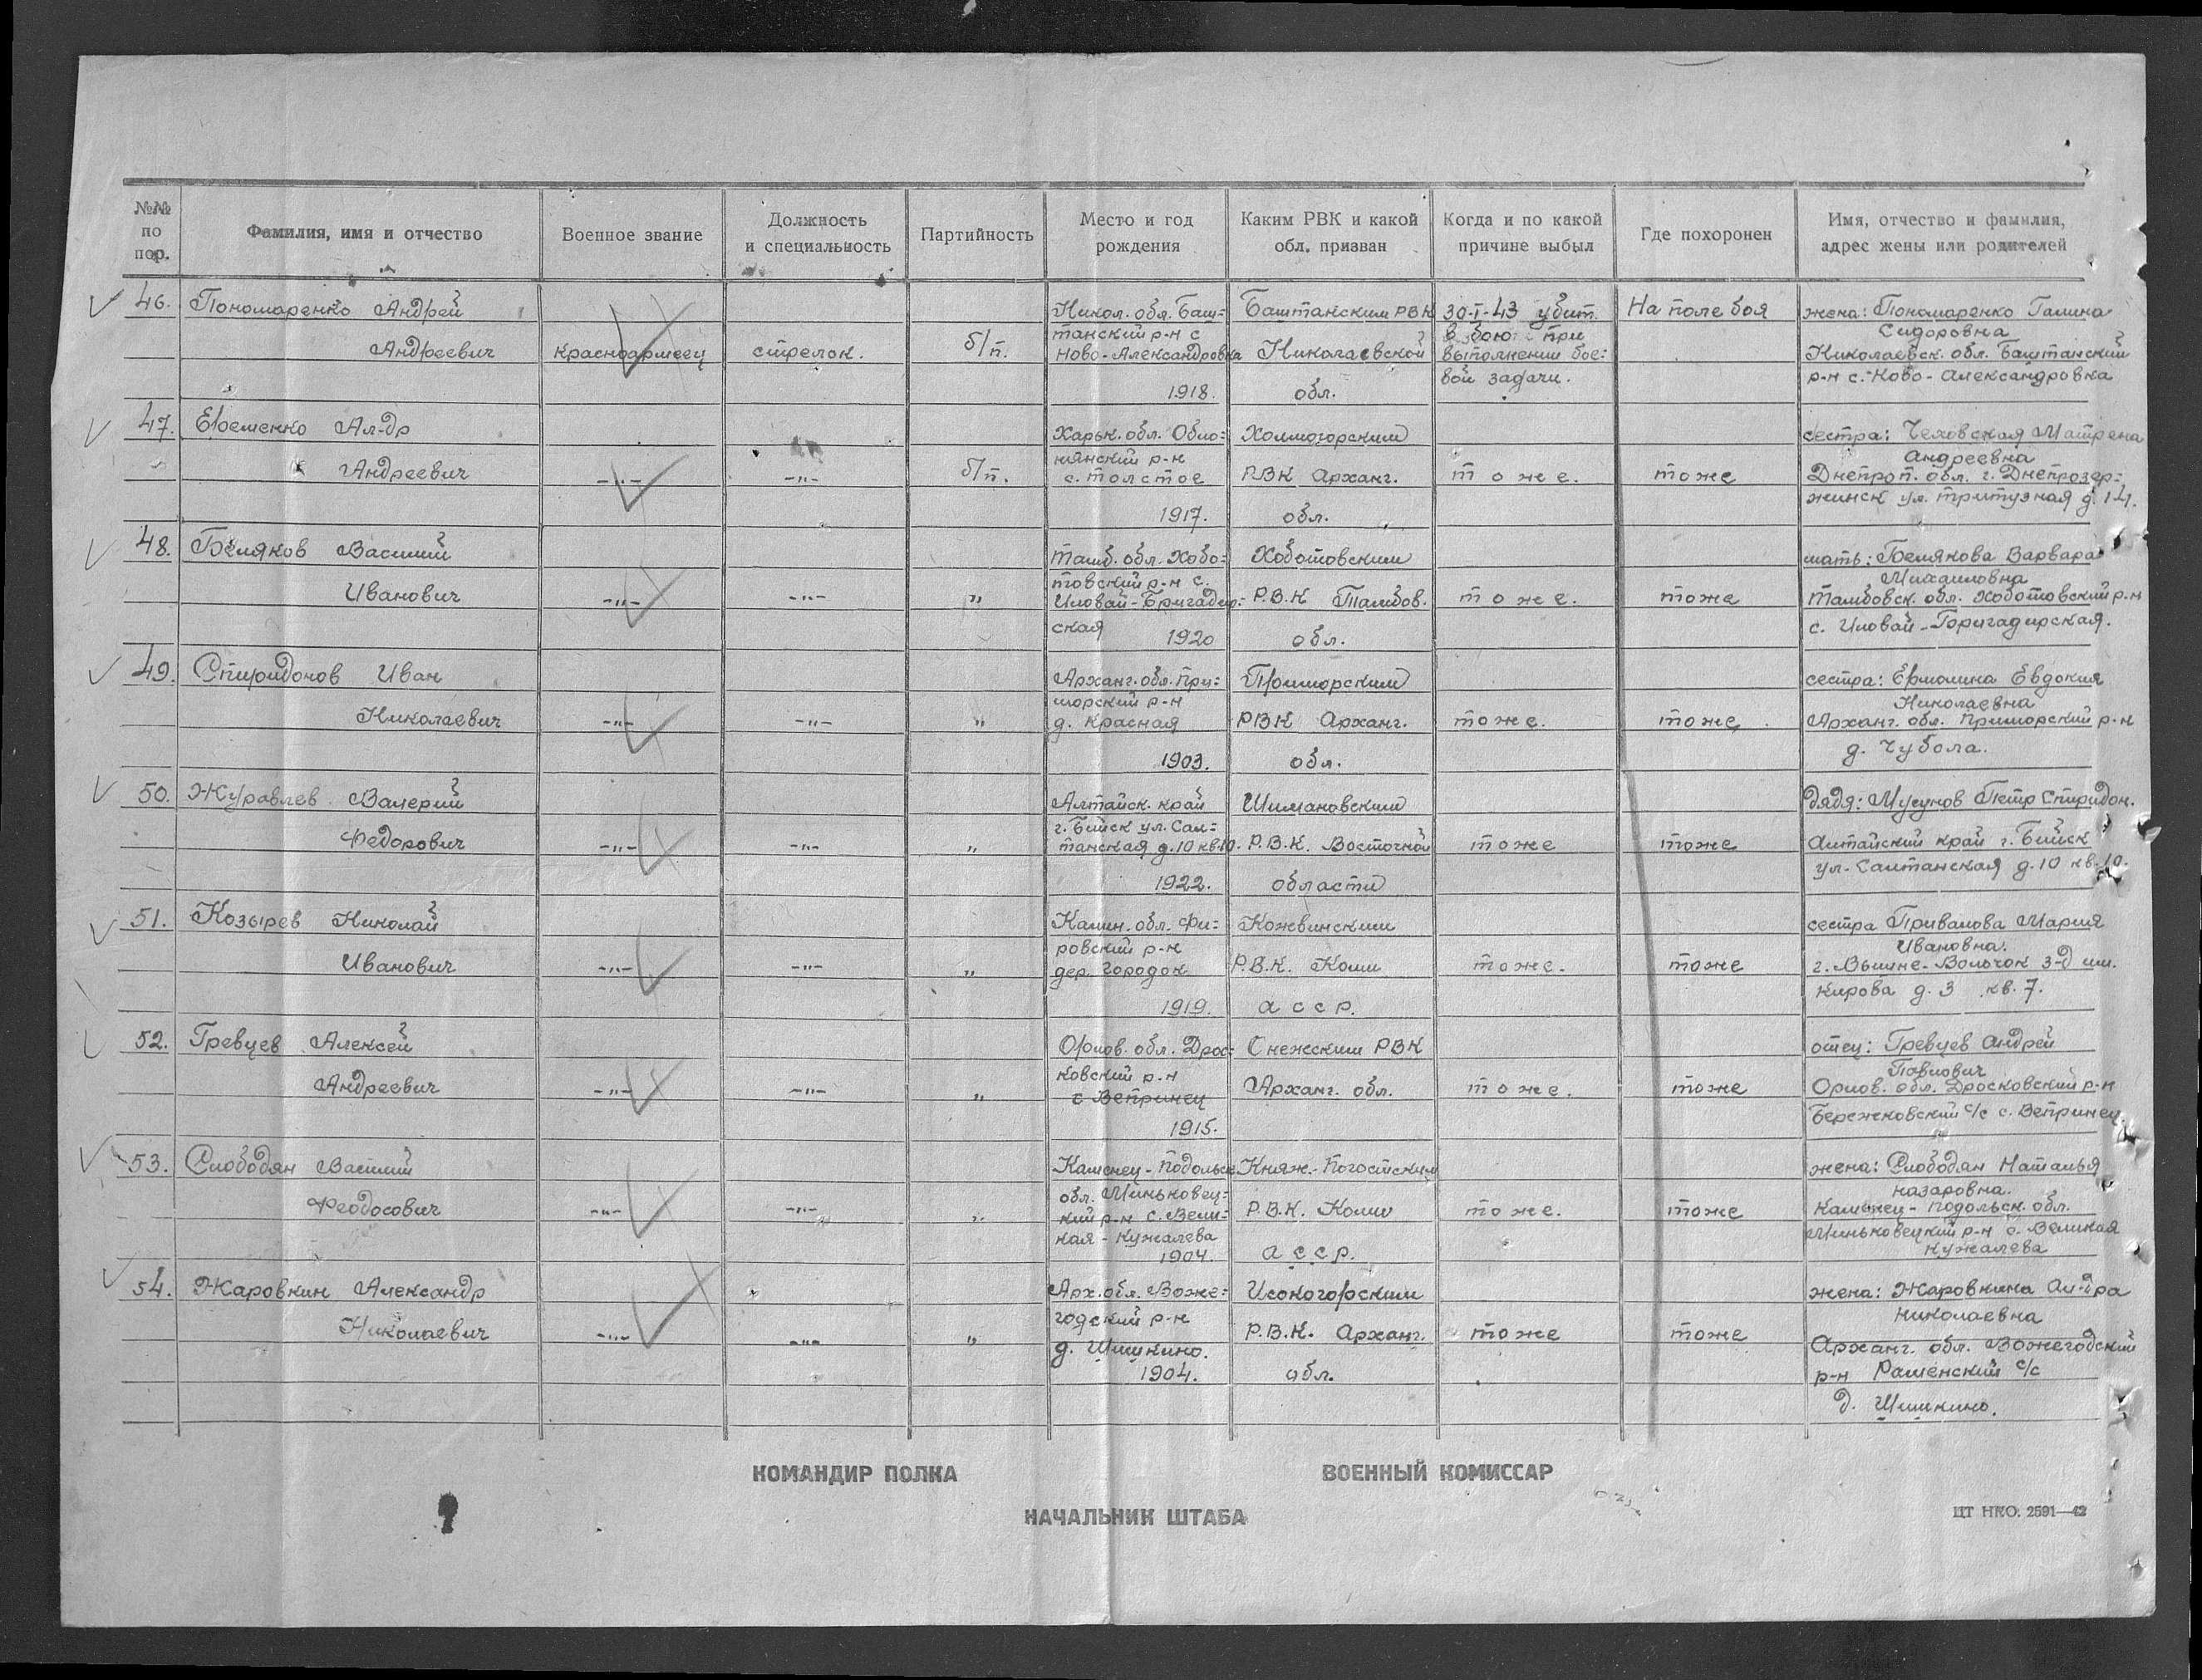 №№ по пор.
Фамилия, имя и отчество
Военное звание
Должность и специальность
Партийность
Место и год рождения
Каким РВК и какой обл. призван
Когда и по какой причине выбыл
Где похоронен
Имя, отчество и фамилия, адрес жены или родителей
46.
Пономаренко Андрей
Андреевич
красноармеец
стрелок.
б/п.
Никол. обл. Баш=
танский р-н с
Ново-Александровка
1918.
Баштанским РВК
Николаевской
обл.
30-I-43 убит
в бою при
выполнении бое=
вой задачи.
На поле боя
жена: Пономаренко Галина
Сидоровна
Николаевск. обл. Баштанский
р-н с. Ново-Александровка
47.
Ефеменко Ал-др
Андреевич
-"-
-"-
б/п.
Харьк. обл. Обло=
нянский р-н
с. Толстое
1917.
Холмогорским
РВК Арханг.
обл.
тоже.
тоже
сестра: Чеховская Матрена
Андреевна
Днепроп. обл. г. Днепрозер=
жинск ул. Тритузная д. 14.
48.
Беляков Василий
Иванович
-"-
-"-
"
Тамб. обл. Хобо=
товский р-н с.
Иловай-Бригадир=
ская
1920
Хоботовским
Р.В.К Тамбов.
обл.
тоже.
тоже
мать: Белякова Варвара
Михайловна
Тамбовск. обл. Хоботовский р-н
с. Иловай-Бригадирская.
49.
Спиридонов Иван
Николаевич
-"-
-"-
"
Арханг. обл. При=
морский р-н
д. Красная
1903.
Приморским
РВК Арханг.
обл.
тоже.
тоже
сестра: Ермолина Евдокия
Николаевна
Арханг. обл. Приморский р-н
д. Чубола.
50.
Журавлев Валерий
Федорович
-"-
-"-
"
Алтайск. край
г. Бийск ул. Сал=
танская д. 10 кв. 10.
1922.
Шимановским
Р.В.К. Восточной
области
тоже
тоже
дядя: Мусунов Петр Спиридон.
Алтайский край г. Бийск
ул. Салтанская д. 10 кв. 10.
51.
Козырев Николай
Иванович
-"-
-"-
"
Калин. обл. Фи=
ровский р-н
дер. Городок
1919.
Кожвинским
Р.В.К. Коми
АССР.
тоже.
тоже
сестра Привалова Мария
Ивановна.
г. Вышне-Волочок 3-д им.
Кирова д. 3 кв. 7.
52.
Гревцев Алексей
Андреевич
-"-
-"-
"
Орлов. обл. Дрос=
ковский р-н
с Вепринец
1915.
Онежским РВК
Арханг. обл.
тоже.
тоже
отец: Гревцев Андрей
Павлович
Орлов. обл. Дросковский р-н
Бережковский с/с с. Вепринец
53.
Слободян Василий
Феодосович
-"-
-"-
"
Каменец-Подольск
обл. Миньковец=
кий р-н с. Вели=
кая-Кужалева
1904.
Княж.-Погостским
Р.В.К. Коми
АССР.
тоже.
тоже
жена: Слободян Наталья
Назаровна.
Каменец-Подольск. обл.
Миньковецкий р-н с. Великая
Кужалева
54.
Жаровкин Александр
Николаевич
-"-
-"-
"
Арх. обл. Воже=
годский р-н
д. Шишкино.
1904.
Исокогорским
Р.В.К. Арханг.
обл.
тоже
тоже
жена: Жаровкина Ал-дра
Николаевна
Арханг. обл. Вожегодский
р-н Раменский с/с
д. Шишкино.
КОМАНДИР ПОЛКА
ВОЕННЫЙ КОМИССАР
НАЧАЛЬНИК ШТАБА
ЦТ НКО. 2591—42